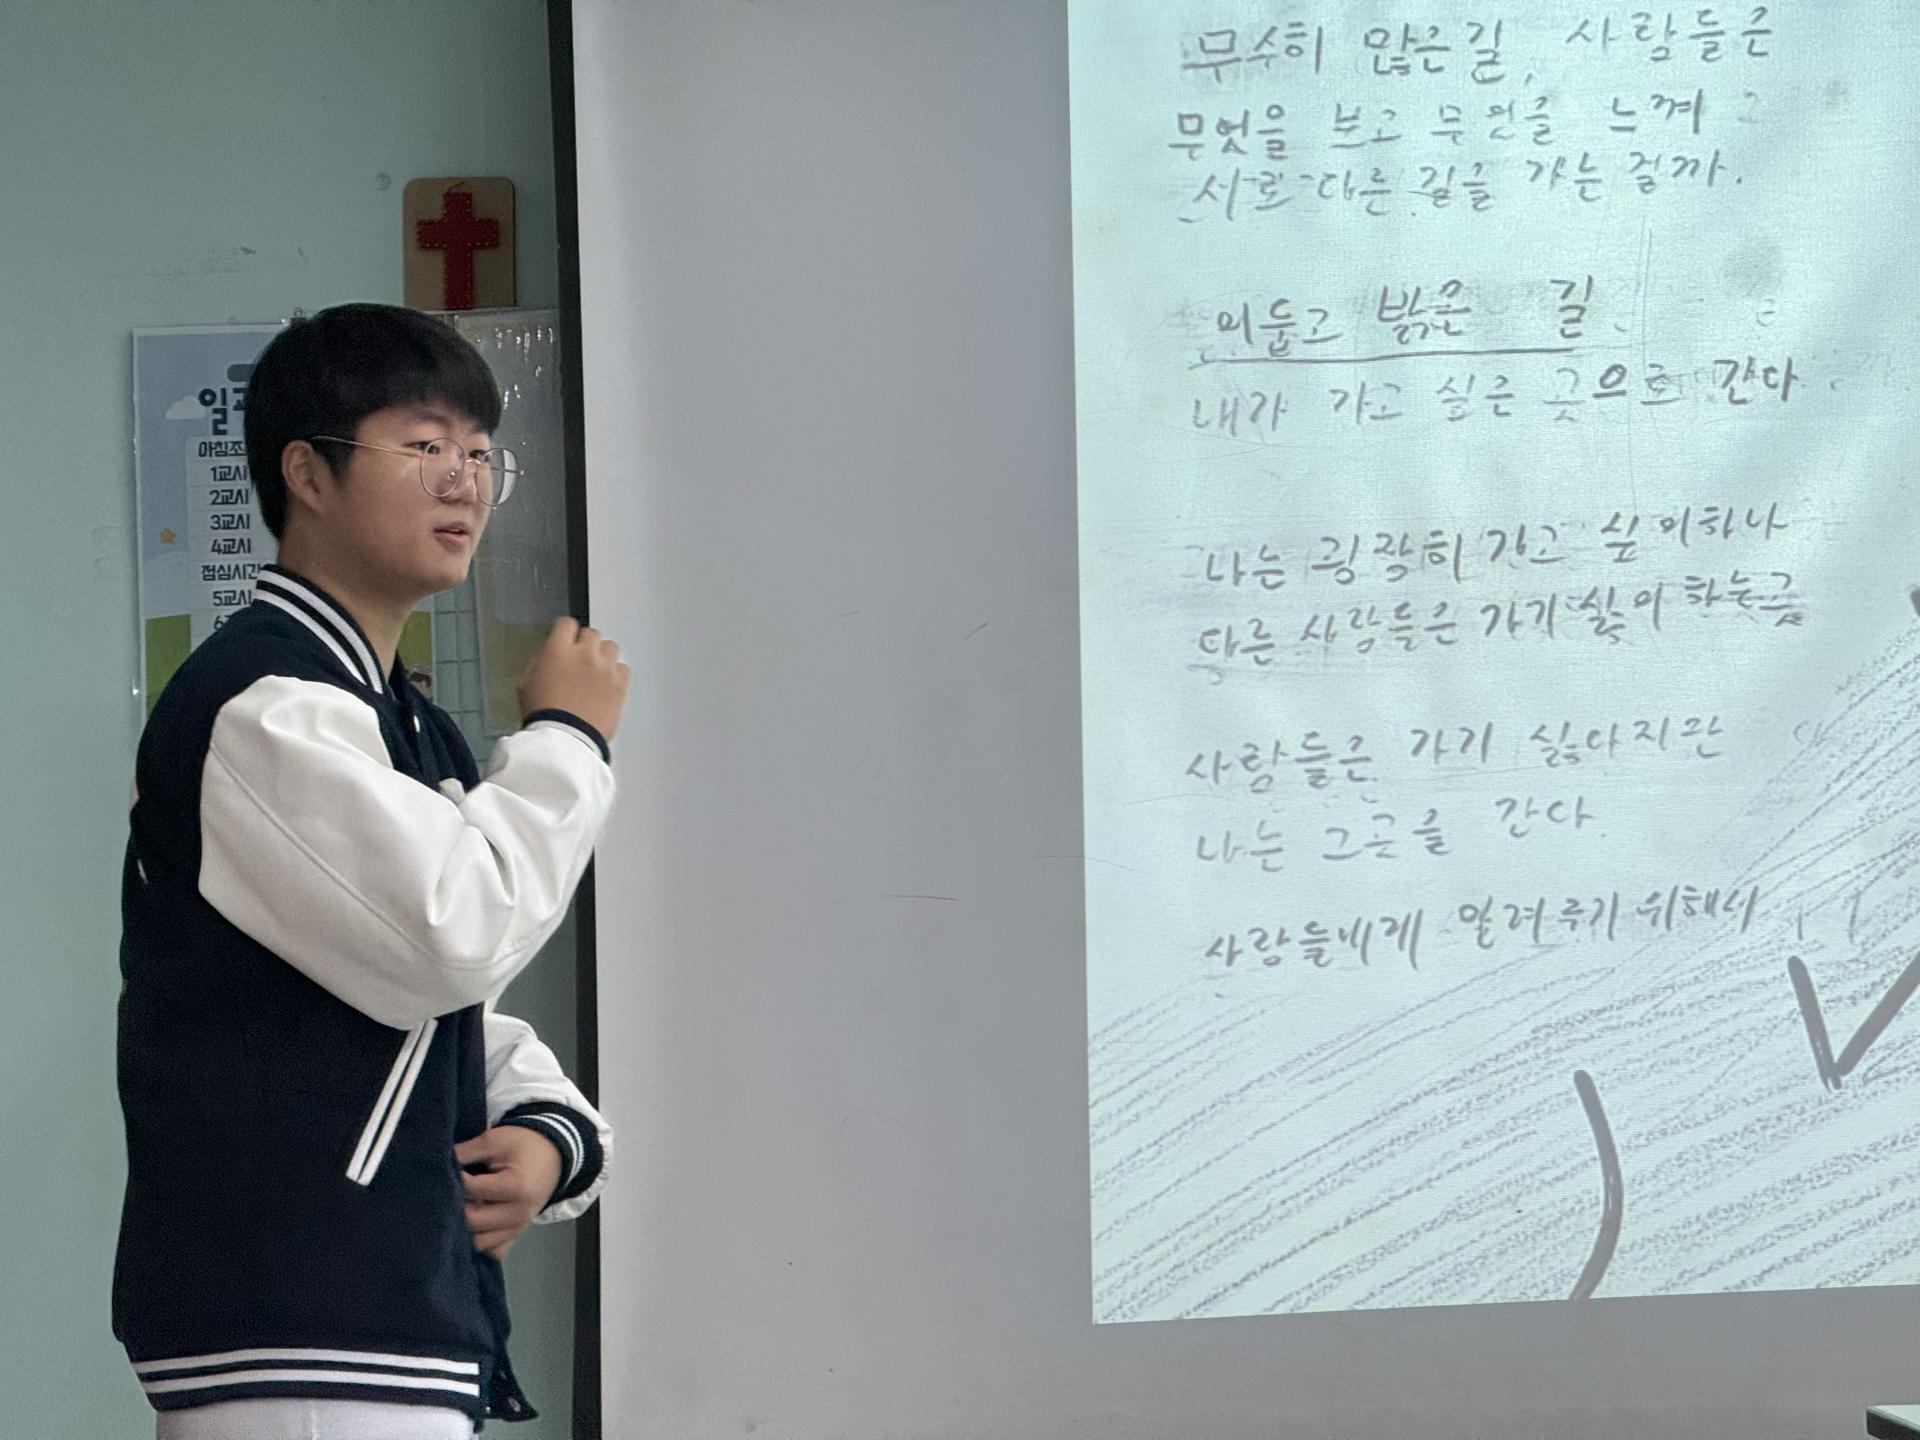 일
아침조
1교시
2교시
3교시
4교시
점심시간
5교시
무수히 많은 길, 사람들은
무엇을 보고 무엇을 느껴
서로 다른 길을 가는 걸까.
어둡고 밝은 길
내가 가고 싶은 곳으로 간다
나는 굉장히 가고 싶어하나
다른 사람들은 가기 싫어 하는 곳
사람들은 가기 싫어하지만
나는 그곳을 간다
사람들에게 알려주기 위해서